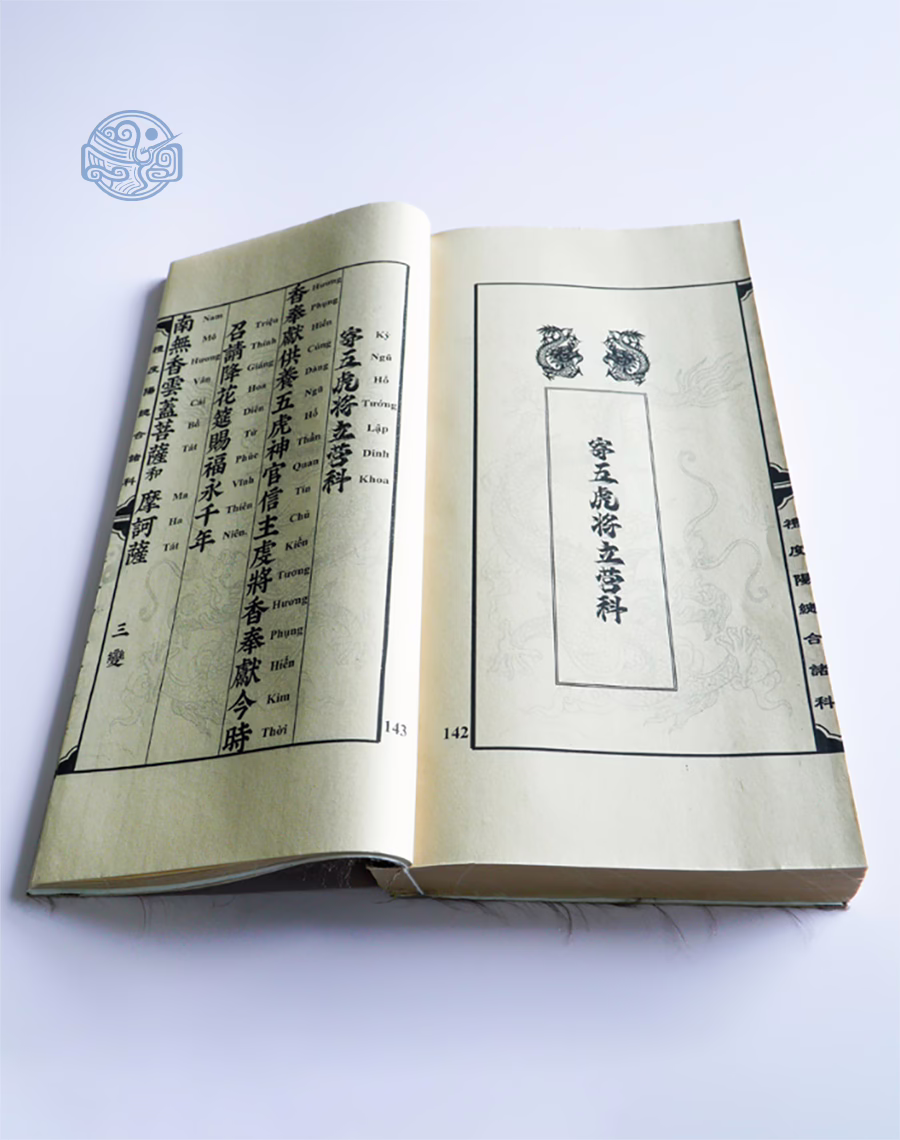 五虎将立营科
禮度陽總合諸科
142
五虎将立营科
Kỳ Ngũ Hổ Tướng Lập Dinh Khoa
香奉獻供養五虎神官信主虔將香奉獻今時
Hương Phụng Hiến Cúng Dàng Ngũ Hổ Thần Quan Tín Chủ Kiền Tương Hương Phụng Hiến Kim Thời
召請降花筵賜福永千年
Triệu Thỉnh Giáng Hoa Diên Tứ Phúc Vĩnh Thiên Niên.
南無香雲蓋菩薩和摩訶薩
Nam Mô Hương Vân Cái Bồ Tát Ma Ha Tát
三變
禮度陽總合諸科
143